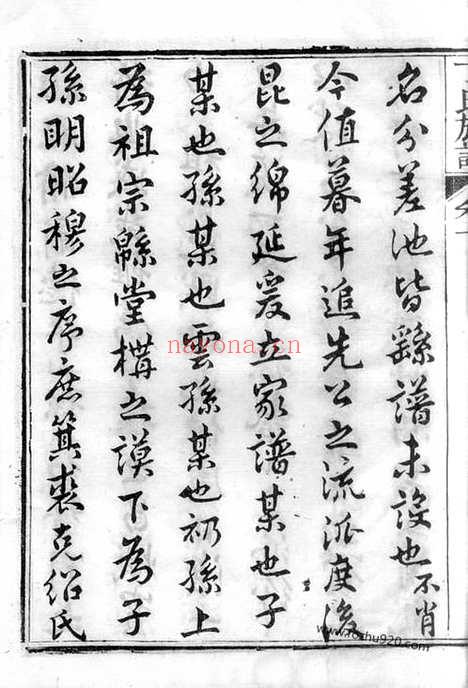 名分差池皆繇譜未設也不肖
今值暮年追先公之流派度後
昆之綿延爰立家譜某也子
某也孫某也雲孫某也礽孫上
為祖宗緜堂構之謨下為子
孫明昭穆之序庶箕裘克紹氏
nayona.cn